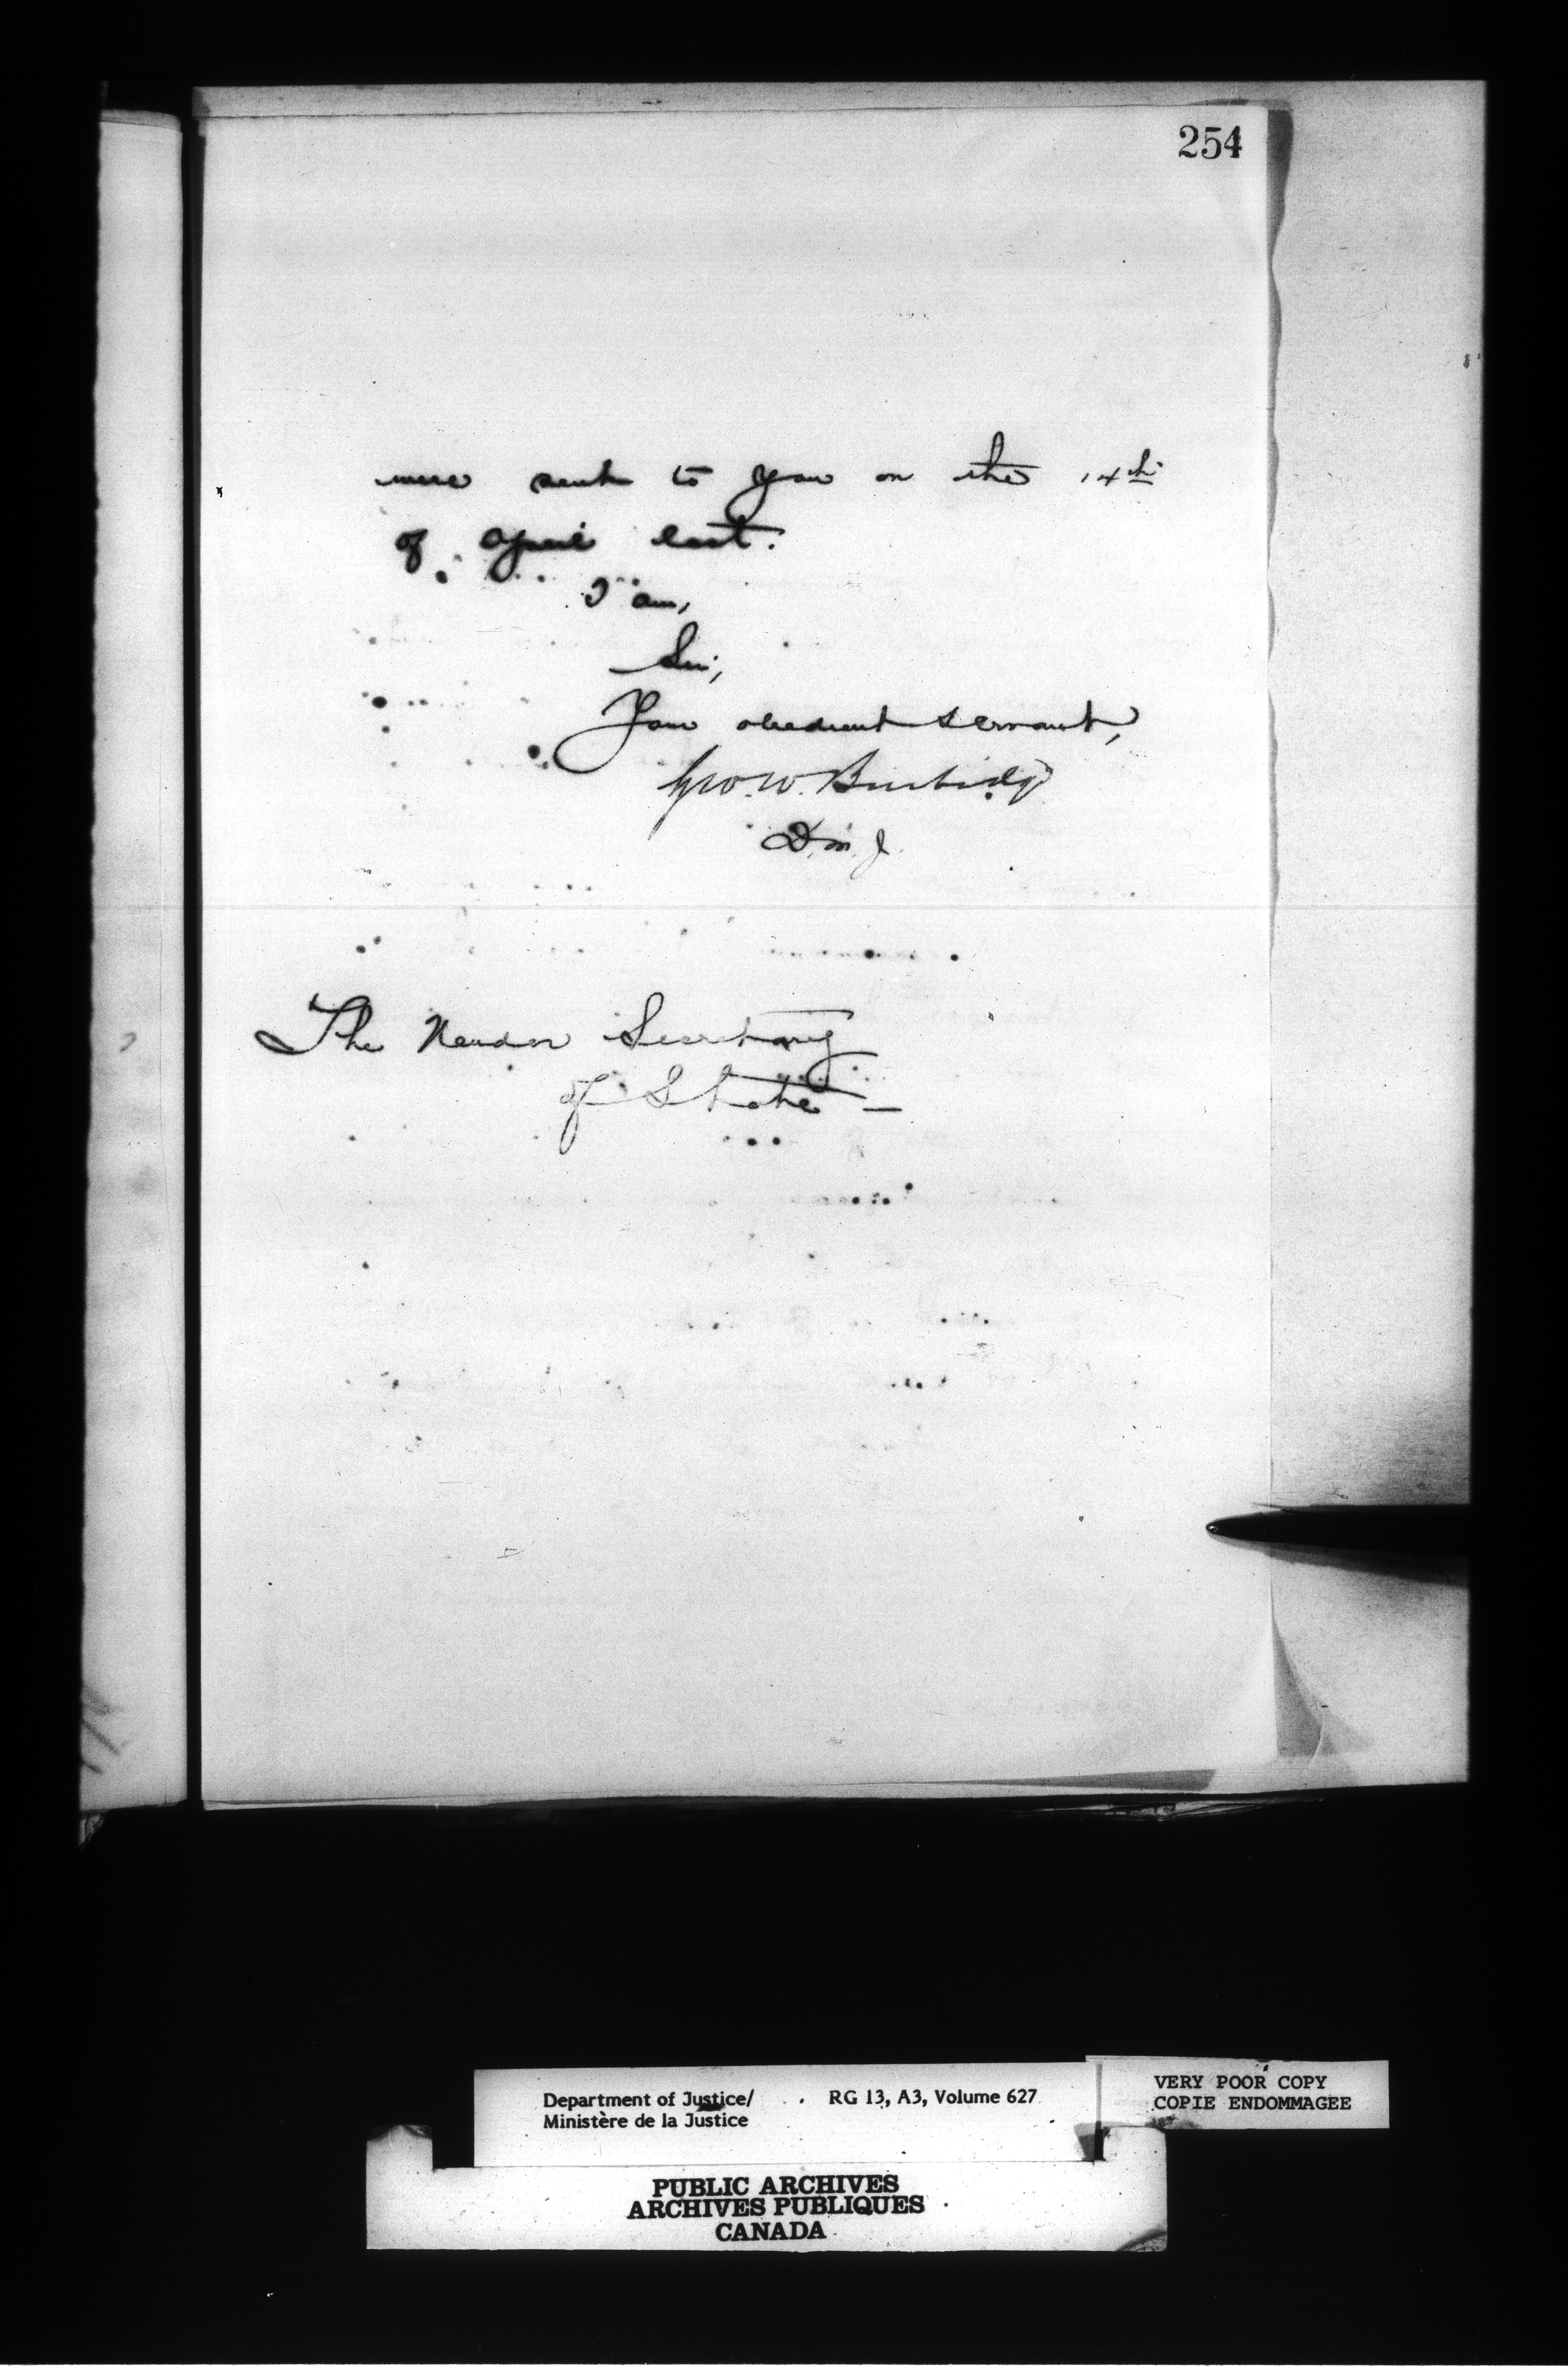 254
were sent to you on the 14th
of April last.
I am,
Sir,
Your obedient servant,
Geo. W. Burbidge
D. M. J.
The Under Secretary
of State —
Department of Justice/
Ministère de la Justice
RG 13, A3, Volume 627
VERY POOR COPY
COPIE ENDOMMAGEE
PUBLIC ARCHIVES
ARCHIVES PUBLIQUES
CANADA